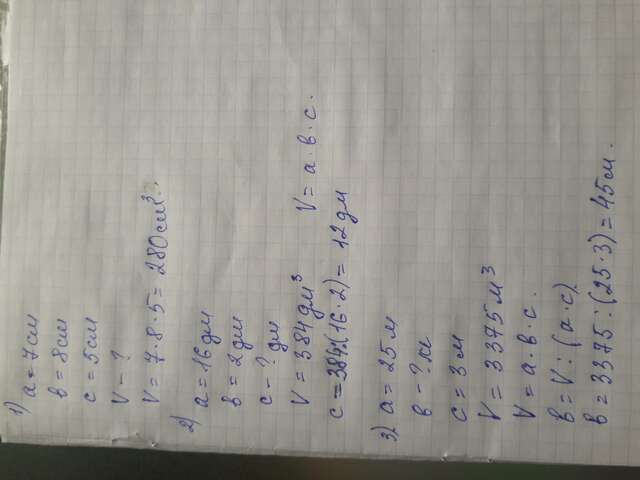 1) a = 7см
в = 8см
c = 5см
V - ?
V = 7·8·5 = 280см³.
2) a = 16дм
в = 2дм
c - ? дм
V = 384дм³ V = a·в·c.
c = 384:(16·2) = 12дм
3) a = 25м
в - ? м
c = 3м
V = 3375м³
V = a·в·c.
в = V : (a·c)
в = 3375 : (25·3) = 45м.